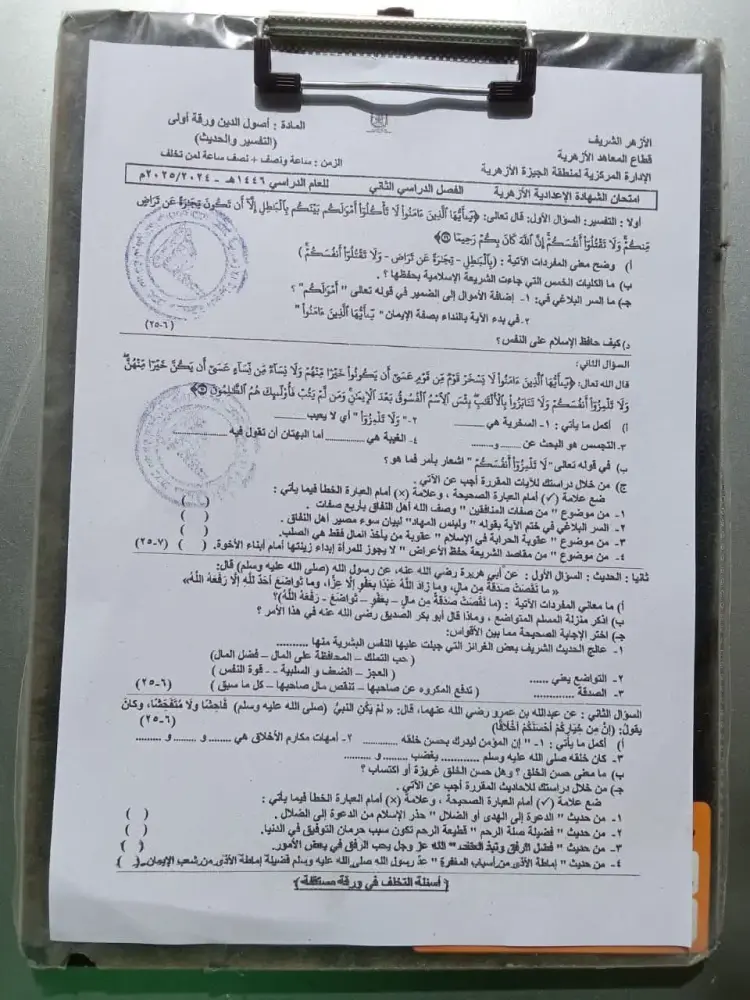 الأزهر الشريف
قطاع المعاهد الأزهرية
الإدارة المركزية لمنطقة الجيزة الأزهرية
المادة : أصول الدين ورقة أولى
(التفسير والحديث)
الزمن : ساعة ونصف + نصف ساعة لمن تخلف
امتحان الشهادة الإعدادية الأزهرية الفصل الدراسي الثاني للعام الدراسي ١٤٤٦هـ - ٢٠٢٥/٢٠٢٤م
أولا : التفسير: السؤال الأول: قال تعالى: ﴿يَٰٓأَيُّهَا ٱلَّذِينَ ءَامَنُوا۟ لَا تَأْكُلُوٓا۟ أَمْوَٰلَكُم بَيْنَكُم بِٱلْبَٰطِلِ إِلَّآ أَن تَكُونَ تِجَٰرَةً عَن تَرَاضٍ
مِّنكُمْ وَلَا تَقْتُلُوٓا۟ أَنفُسَكُمْ إِنَّ ٱللَّهَ كَانَ بِكُمْ رَحِيمًا ۝٢٩﴾
أ) وضح معنى المفردات الآتية : (بِٱلْبَٰطِلِ - تِجَٰرَةً عَن تَرَاضٍ - وَلَا تَقْتُلُوٓا۟ أَنفُسَكُمْ )
ب) ما الكليات الخمس التي جاءت الشريعة الإسلامية بحفظها ؟
جـ) ما السر البلاغي في: ١- إضافة الأموال إلى الضمير في قوله تعالى " أَمْوَٰلَكُم" ؟
٢- في بدء الآية بالنداء بصفة الإيمان" يَٰٓأَيُّهَا ٱلَّذِينَ ءَامَنُوا۟ "
د) كيف حافظ الإسلام على النفس؟ (٦-٢٥)
السؤال الثاني:
قال الله تعالى: ﴿يَٰٓأَيُّهَا ٱلَّذِينَ ءَامَنُوا۟ لَا يَسْخَرْ قَوْمٌ مِّن قَوْمٍ عَسَىٰٓ أَن يَكُونُوا۟ خَيْرًا مِّنْهُمْ وَلَا نِسَآءٌ مِّن نِّسَآءٍ عَسَىٰٓ أَن يَكُنَّ خَيْرًا مِّنْهُنَّ
وَلَا تَلْمِزُوٓا۟ أَنفُسَكُمْ وَلَا تَنَابَزُوا۟ بِٱلْأَلْقَٰبِ بِئْسَ ٱلِٱسْمُ ٱلْفُسُوقُ بَعْدَ ٱلْإِيمَٰنِ وَمَن لَّمْ يَتُبْ فَأُو۟لَٰٓئِكَ هُمُ ٱلظَّٰلِمُونَ ۝١١﴾
أ) أكمل ما يأتي : ١- السخرية هي .......... ٢- " وَلَا تَلْمِزُوٓا۟ " أي لا يعيب ..........
٣- التجسس هو البحث عن ........ و........ ٤- الغيبة هي ............ أما البهتان أن تقول فيه ............
ب) في قوله تعالى" لَا تَلْمِزُوٓا۟ أَنفُسَكُمْ " اشعار بأمر فما هو؟
ج) من خلال دراستك للآيات المقررة أجب عن الآتي .
ضع علامة (✓) أمام العبارة الصحيحة ، وعلامة (×) أمام العبارة الخطأ فيما يأتي :
١- من موضوع " من صفات المنافقين " وصف الله أهل النفاق بأربع صفات . ( )
٢- السر البلاغي في ختم الآية بقوله " ولبئس المهاد" لبيان سوء مصير أهل النفاق . ( )
٣- من موضوع " عقوبة الحرابة في الإسلام " عقوبة من يأخذ المال فقط هي الصلب. ( )
٤- من موضوع " من مقاصد الشريعة حفظ الأعراض " لا يجوز للمرأة إبداء زينتها أمام أبناء الأخوة. ( ) (٧-٢٥)
ثانيا : الحديث : السؤال الأول : عن أبي هريرة رضي الله عنه، عن رسول الله (صلى الله عليه وسلم) قال:
« ما نَقَصَتْ صَدَقَةٌ مِن مالٍ، وما زادَ اللَّهُ عَبْدًا بعَفْوٍ إلَّا عِزًّا، وما تَواضَعَ أحَدٌ لِلَّهِ إلَّا رَفَعَهُ اللَّهُ»
أ) ما معاني المفردات الآتية : (ما نَقَصَتْ صَدَقَةٌ مِن مالٍ – بعَفْوٍ – تَواضَعَ - رَفَعَهُ اللَّهُ)؟
ب) اذكر منزلة المسلم المتواضع ، وماذا قال أبو بكر الصديق رضي الله عنه في هذا الأمر ؟
جـ) اختر الإجابة الصحيحة مما بين الأقواس:
١- عالج الحديث الشريف بعض الغرائز التي جبلت عليها النفس البشرية منها ..........
( حب التملك – المحافظة على المال – فضل المال)
٢- التواضع يعني ...... ( العجز – الضعف و السلبية – قوة النفس )
٣- الصدقة ............ ( تدفع المكروه عن صاحبها – تنقص مال صاحبها – كل ما سبق ) (٦-٢٥)
السؤال الثاني : عن عبدالله بن عمرو رضي الله عنهما، قال: « لَمْ يَكُنِ النبيُّ (صلى الله عليه وسلم) فَاحِشًا ولَا مُتَفَحِّشًا، وكانَ
يقولُ: (إنَّ مِن خِيَارِكُمْ أحْسَنَكُمْ أخْلَاقًا) (٦-٢٥)
أ) أكمل ما يأتي : ١- " إن المؤمن ليدرك بحسن خلقه ............ ٢- أمهات مكارم الأخلاق هي ........ و ........ و ........
٣- كان خلقه صلى الله عليه وسلم ............ يغضب ........ و ........
ب) ما معنى حسن الخلق ؟ وهل حسن الخلق غريزة أو اكتساب ؟
جـ) من خلال دراستك للأحاديث المقررة أجب عن الآتي .
ضع علامة (✓) أمام العبارة الصحيحة ، وعلامة (×) أمام العبارة الخطأ فيما يأتي :
١- من حديث " الدعوة إلى الهدى أو الضلال " حذر الإسلام من الدعوة إلى الضلال . ( )
٢- من حديث " فضيلة صلة الرحم " قطيعة الرحم تكون سبب حرمان التوفيق في الدنيا. ( )
٣- من حديث " فضل الرفق ونبذ العنف " الله عز وجل يحب الرفق في بعض الأمور. ( )
٤- من حديث " إماطة الأذى من أسباب المغفرة " عد رسول الله صلى الله عليه وسلم فضيلة إماطة الأذى من شعب الإيمان. ( )
{ أسئلة التخلف في ورقة مستقلة }